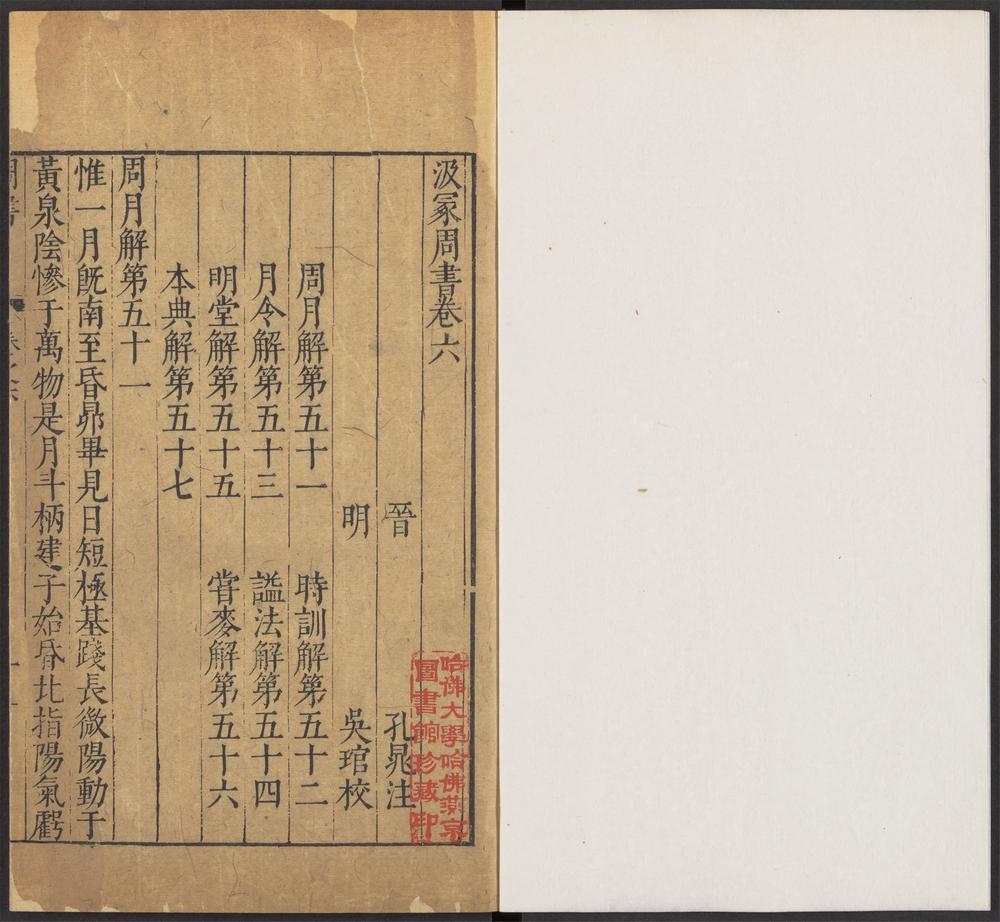 汲冢周書卷六
晉　孔晁注
明　吳琯校
周月解第五十一　時訓解第五十二
月令解第五十三　謚法解第五十四
明堂解第五十五　甞麥解第五十六
本典解第五十七
周月解第五十一
惟一月既南至昏昴畢見日短極基踐長微陽動于
黃泉陰慘于萬物是月斗柄建子始昏北指陽氣虧
哈佛大學哈佛燕京
圖書館珍藏印